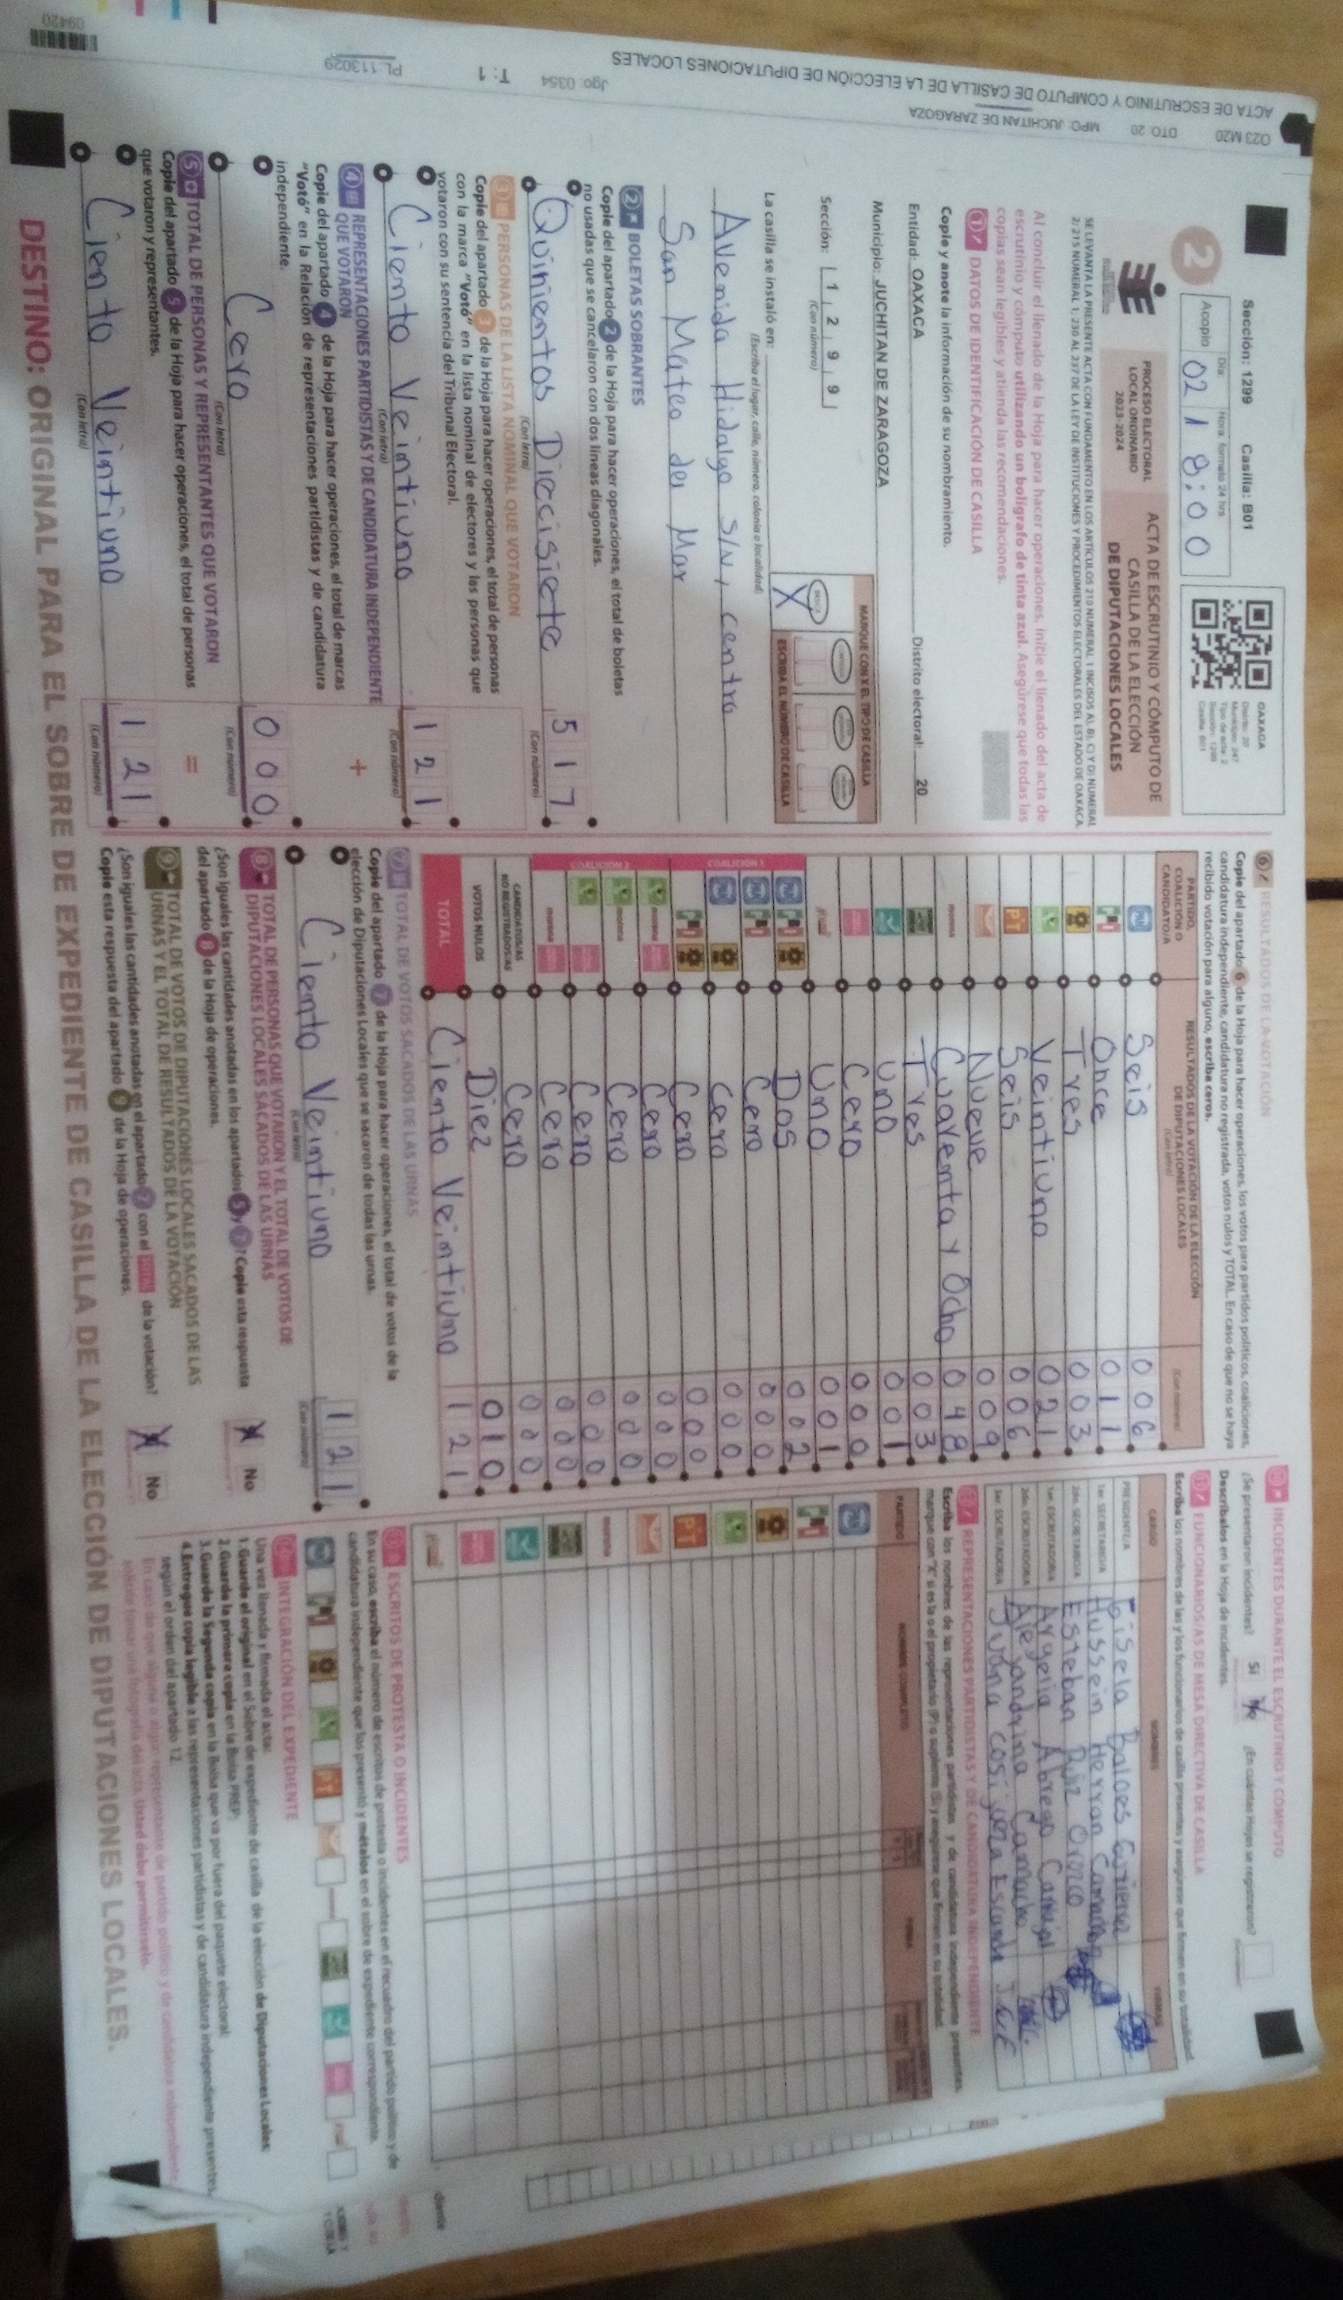 O23 M20 DTO 20 MPO: JUCHITAN DE ZARAGOZA
ACTA DE ESCRUTINIO Y COMPUTO DE CASILLA DE LA ELECCIÓN DE DIPUTACIONES LOCALES
Jgo: 0354 T: 1 PL: 113029
09420
Sección: 1299 Casilla: B01
Día Hora, formato 24 hrs
2 Acopio 02 18:00
OAXACA
PROCESO ELECTORAL
LOCAL ORDINARIO
2023-2024
ACTA DE ESCRUTINIO Y CÓMPUTO DE
CASILLA DE LA ELECCIÓN
DE DIPUTACIONES LOCALES
Al concluir el llenado de la Hoja para hacer operaciones, inicie el llenado del acta de
escrutinio y cómputo utilizando un bolígrafo de tinta azul. Asegúrese que todas las
copias sean legibles y atienda las recomendaciones.
1 DATOS DE IDENTIFICACIÓN DE CASILLA
Copie y anote la información de su nombramiento.
Entidad: OAXACA Distrito electoral: 20
Municipio: JUCHITAN DE ZARAGOZA
Sección: 1 2 9 9
(Con número)
MARQUE CON X EL TIPO DE CASILLA
X
ESCRIBA EL NÚMERO DE CASILLA
La casilla se instaló en:
(Escriba el lugar, calle, número, colonia o localidad)
Avenida Hidalgo S/N, Centro
San Mateo del Mar
2 BOLETAS SOBRANTES
Copie del apartado 2 de la Hoja para hacer operaciones, el total de boletas
no usadas que se cancelaron con dos líneas diagonales.
Quinientos Diecisiete 5 1 7
(Con letra) (Con número)
3 PERSONAS DE LA LISTA NOMINAL QUE VOTARON
Copie del apartado 3 de la Hoja para hacer operaciones, el total de personas
con la marca "Votó" en la lista nominal de electores y las personas que
votaron con su sentencia del Tribunal Electoral.
Ciento Veintiuno 1 2 1
(Con letra) (Con número)
+
4 REPRESENTACIONES PARTIDISTAS Y DE CANDIDATURA INDEPENDIENTE
QUE VOTARON
Copie del apartado 4 de la Hoja para hacer operaciones, el total de marcas
"Votó" en la Relación de representaciones partidistas y de candidatura
independiente.
Cero 0 0 0
(Con letra) (Con número)
=
5 TOTAL DE PERSONAS Y REPRESENTANTES QUE VOTARON
Copie del apartado 5 de la Hoja para hacer operaciones, el total de personas
que votaron y representantes.
Ciento Veintiuno 1 2 1
(Con letra) (Con número)
6 RESULTADOS DE LA VOTACIÓN
Copie del apartado 6 de la Hoja para hacer operaciones, los votos para partidos políticos, coaliciones,
candidatura independiente, candidatura no registrada, votos nulos y TOTAL. En caso de que no se haya
recibido votación para alguno, escriba ceros.
PARTIDO,
COALICIÓN O
CANDIDATO/A
RESULTADOS DE LA VOTACIÓN DE LA ELECCIÓN
DE DIPUTACIONES LOCALES
Seis 0 0 6
Once 0 1 1
Tres 0 0 3
Veintiuno 0 2 1
PT Seis 0 0 6
Nueve 0 0 9
morena Cuarenta y Ocho 0 4 8
Tres 0 0 3
Uno 0 0 1
Cero 0 0 0
Uno 0 0 1
COALICIÓN 1
Dos 0 0 2
Cero 0 0 0
Cero 0 0 0
Cero 0 0 0
COALICIÓN 2
Cero 0 0 0
Cero 0 0 0
Cero 0 0 0
Cero 0 0 0
CANDIDATOS/AS
NO REGISTRADOS/AS Cero 0 0 0
VOTOS NULOS Diez 0 1 0
TOTAL Ciento Veintiuno 1 2 1
7 TOTAL DE VOTOS SACADOS DE LAS URNAS
Copie del apartado 7 de la Hoja para hacer operaciones, el total de votos de la
elección de Diputaciones Locales que se sacaron de todas las urnas.
Ciento Veintiuno 1 2 1
8 TOTAL DE PERSONAS QUE VOTARON Y EL TOTAL DE VOTOS DE
DIPUTACIONES LOCALES SACADOS DE LAS URNAS
¿Son iguales las cantidades anotadas en los apartados 5 y 7? Copie esta respuesta
del apartado 8 de la Hoja de operaciones. X No
9 TOTAL DE VOTOS DE DIPUTACIONES LOCALES SACADOS DE LAS
URNAS Y EL TOTAL DE RESULTADOS DE LA VOTACIÓN
¿Son iguales las cantidades anotadas en el apartado 7 con el TOTAL de la votación?
Copie esta respuesta del apartado 9 de la Hoja de operaciones. X No
10 INCIDENTES DURANTE EL ESCRUTINIO Y CÓMPUTO
¿Se presentaron incidentes? Sí ¿En cuántas Hojas se registraron?
Descríbalos en la Hoja de incidentes.
11 FUNCIONARIOS/AS DE MESA DIRECTIVA DE CASILLA
Escriba los nombres de las y los funcionarios de casilla presentes y asegúrese que firmen en su totalidad.
CARGO NOMBRES FIRMA
PRESIDENTE/A
1er. SECRETARIO/A Hussein Herran
2do. SECRETARIO/A Esteban Orozco
1er. ESCRUTADOR/A Argelia Abrego
2do. ESCRUTADOR/A Camacho
3er. ESCRUTADOR/A Juana J.C.E
12 REPRESENTACIONES PARTIDISTAS Y DE CANDIDATURA INDEPENDIENTE
Escriba los nombres de las representaciones partidistas y de candidatura independiente presentes,
marque con "X" si es la o el propietario (P) o suplente (S) y asegúrese que firmen en su totalidad.
PARTIDO NOMBRE COMPLETO FIRMA
PT
morena
13 ESCRITOS DE PROTESTA O INCIDENTES
En su caso, escriba el número de escritos de protesta o incidentes en el recuadro del partido político y de
candidatura independiente que los presentó y métalos en el sobre de expediente correspondiente.
14 INTEGRACIÓN DEL EXPEDIENTE
Una vez llenada y firmada el acta:
1.Guarde el original en el Sobre de expediente de casilla de la elección de Diputaciones Locales.
2.Guarde la primera copia en la Bolsa PREP.
3.Guarde la Segunda copia en la Bolsa que va por fuera del paquete electoral.
4.Entregue copia legible a las representaciones partidistas y de candidatura independiente presentes,
según el orden del apartado 12.
DESTINO: ORIGINAL PARA EL SOBRE DE EXPEDIENTE DE CASILLA DE LA ELECCIÓN DE DIPUTACIONES LOCALES.